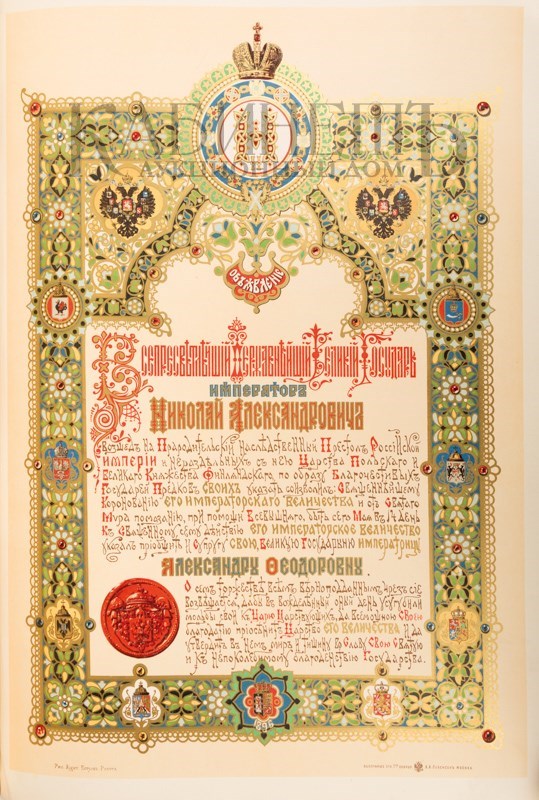 КАБИНЕТЪ
АУКЦИОННЫЙ ДОМ
ОБЪЯВЛЕНІЕ
ВСЕПРЕСВѢТЛѢЙШІЙ ДЕРЖАВНѢЙШІЙ ВЕЛИКІЙ ГОСУДАРЬ
ИМПЕРАТОРЪ
НИКОЛАЙ АЛЕКСАНДРОВИЧЪ
ВОЗШЕДЪ НА ПРАРОДИТЕЛЬСКІЙ НАСЛѢДСТВЕННЫЙ ПРЕСТОЛЪ РОССІЙСКОЙ
ИМПЕРІИ И НЕРАЗДѢЛЬНЫХЪ СЪ НЕЮ ЦАРСТВА ПОЛЬСКАГО И
ВЕЛИКАГО КНЯЖЕСТВА ФИНЛЯНДСКАГО, ПО ОБРАЗУ БЛАГОЧЕСТИВЫХЪ
ГОСУДАРЕЙ ПРЕДКОВЪ СВОИХЪ УКАЗАТЬ СОИЗВОЛИЛЪ: СВЯЩЕННѢЙШЕМУ
КОРОНОВАНІЮ ЕГО ИМПЕРАТОРСКАГО ВЕЛИЧЕСТВА И ОТЪ СВЯТАГО
МѴРА ПОМАЗАНІЮ, ПРИ ПОМОЩИ ВСЕВЫШНЯГО, БЫТЬ СЕГО МАЯ ВЪ ДЕНЬ
КЪ СВЯЩЕННОМУ СЕМУ ДѢЙСТВІЮ ЕГО ИМПЕРАТОРСКОЕ ВЕЛИЧЕСТВО
УКАЗАЛЪ ПРІОБЩИТЬ И СУПРУГУ СВОЮ, ВЕЛИКУЮ ГОСУДАРЫНЮ ИМПЕРАТРИЦУ
АЛЕКСАНДРУ ѲЕОДОРОВНУ.
О СЕМЪ ТОРЖЕСТВѢ ВСѢМЪ ВѢРНОПОДДАННЫМЪ ЧРЕЗЪ СІЕ
ВОЗВѢЩАЕТСЯ, ДАБЫ ВЪ ВОЖДЕЛѢННЫЙ ОНЫЙ ДЕНЬ УСУГУБИЛИ
МОЛЬБЫ СВОИ КЪ ЦАРЮ ЦАРСТВУЮЩИХЪ, ДА ВСЕМОЩНОЮ СВОЕЮ
БЛАГОДАТІЮ ПРІОСѢНИТЪ ЦАРСТВО ЕГО ВЕЛИЧЕСТВА И ДА
УТВЕРДИТЪ ВЪ НЕМЪ МИРЪ И ТИШИНУ ВО СЛАВУ СВОЮ СВЯТУЮ
И КЪ НЕПОКОЛЕБИМОМУ БЛАГОДЕНСТВІЮ ГОСУДАРСТВА.
1896